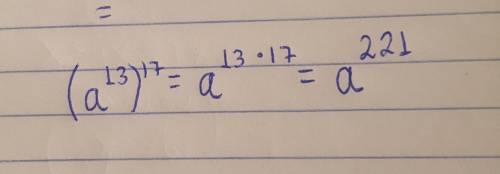 =
(a¹³)¹⁷ = a¹³·¹⁷ = a²²¹